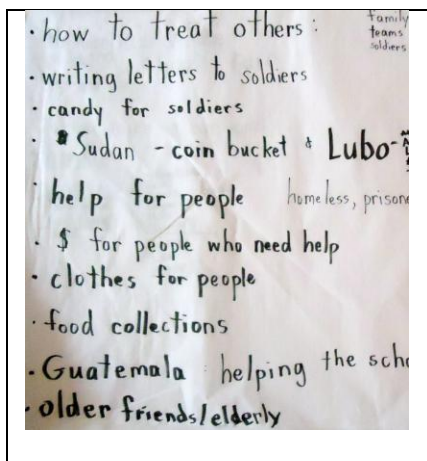 · how to treat others :
family
teams
soldiers
· writing letters to soldiers
· candy for soldiers
· Sudan - coin bucket & Lubo-
· help for people homeless,
· $ for people who need help
· clothes for people
· food collections
· Guatemala : helping the
· older friends/elderly